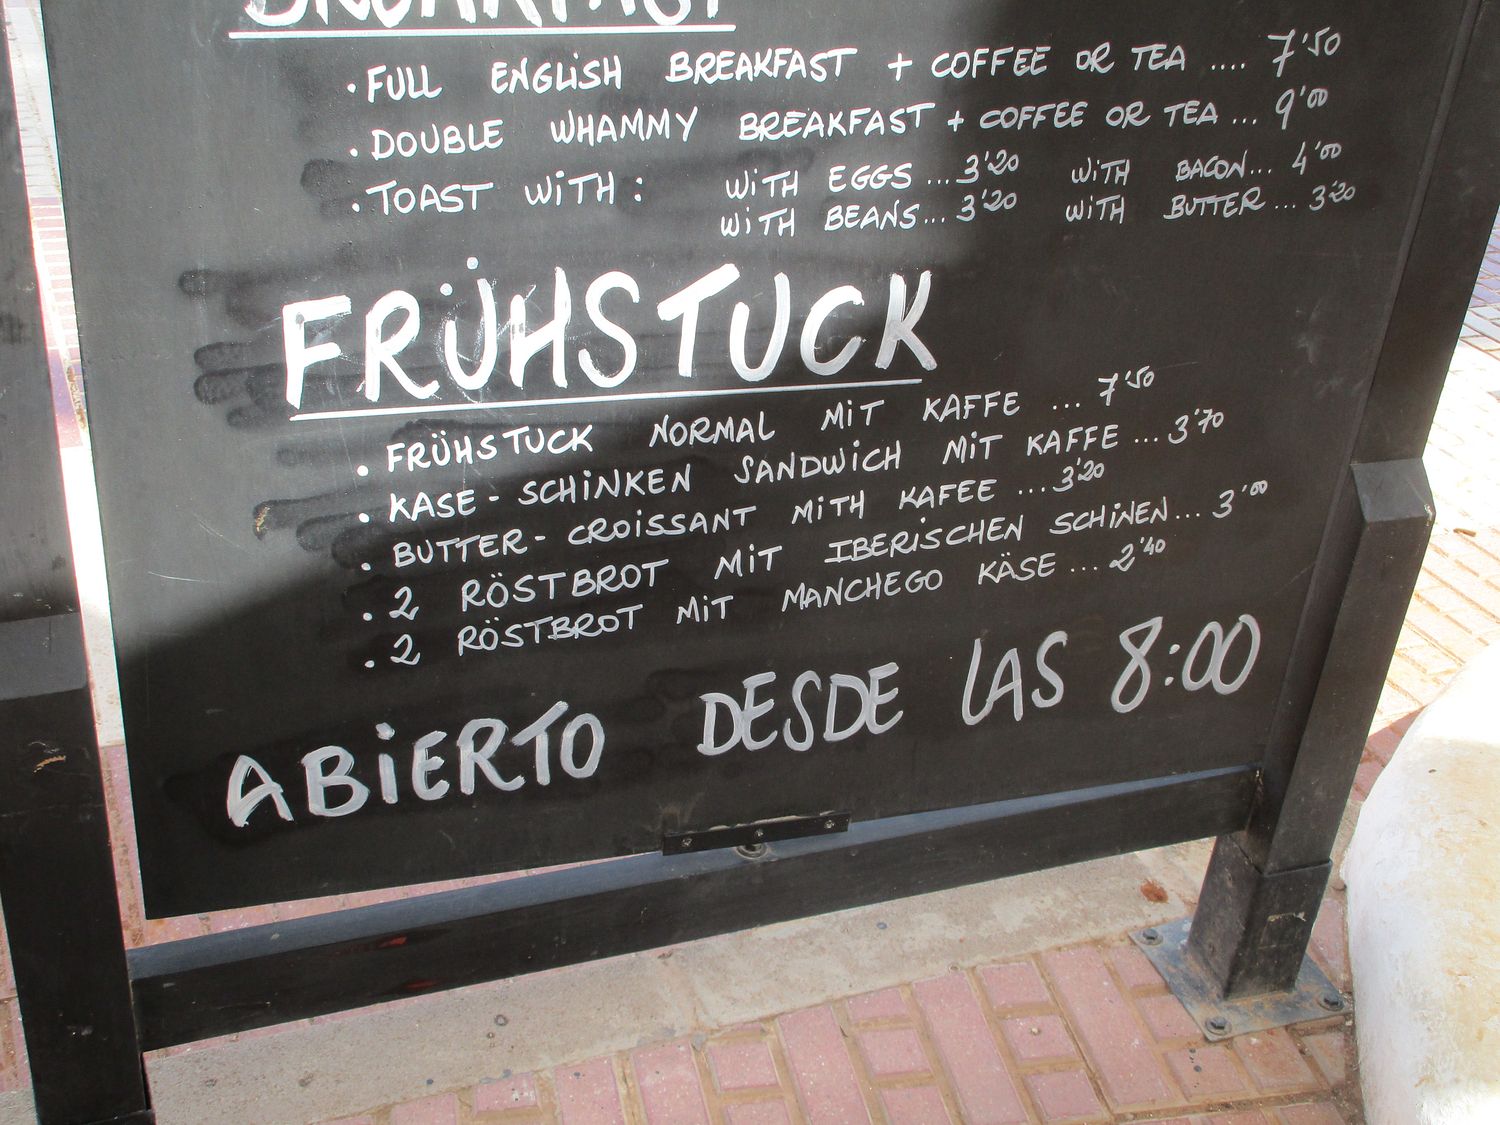 BREAKFAST
. FULL ENGLISH BREAKFAST + COFFEE OR TEA .... 7'50
. DOUBLE WHAMMY BREAKFAST + COFFEE OR TEA ... 9'00
. TOAST WITH : WITH EGGS ... 3'20 WITH BACON ... 4'00
WITH BEANS ... 3'20 WITH BUTTER ... 3'20
FRÜHSTUCK
. FRÜHSTUCK NORMAL MIT KAFFE ... 7'50
. KASE - SCHINKEN SANDWICH MIT KAFFE ... 3'70
. BUTTER - CROISSANT MITH KAFEE ... 3'20
. 2 RÖSTBROT MIT IBERISCHEN SCHINEN ... 3'00
. 2 RÖSTBROT MIT MANCHEGO KÄSE ... 2'40
ABIERTO DESDE LAS 8:00